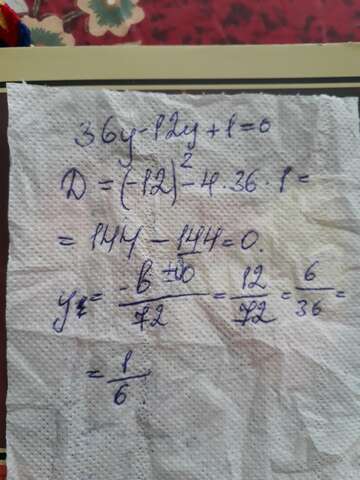 36y-12y+1=0
D=(-12)²-4·36·1=
=144-144=0.
y₁=(-b±0)/72=12/72=6/36=
=1/6